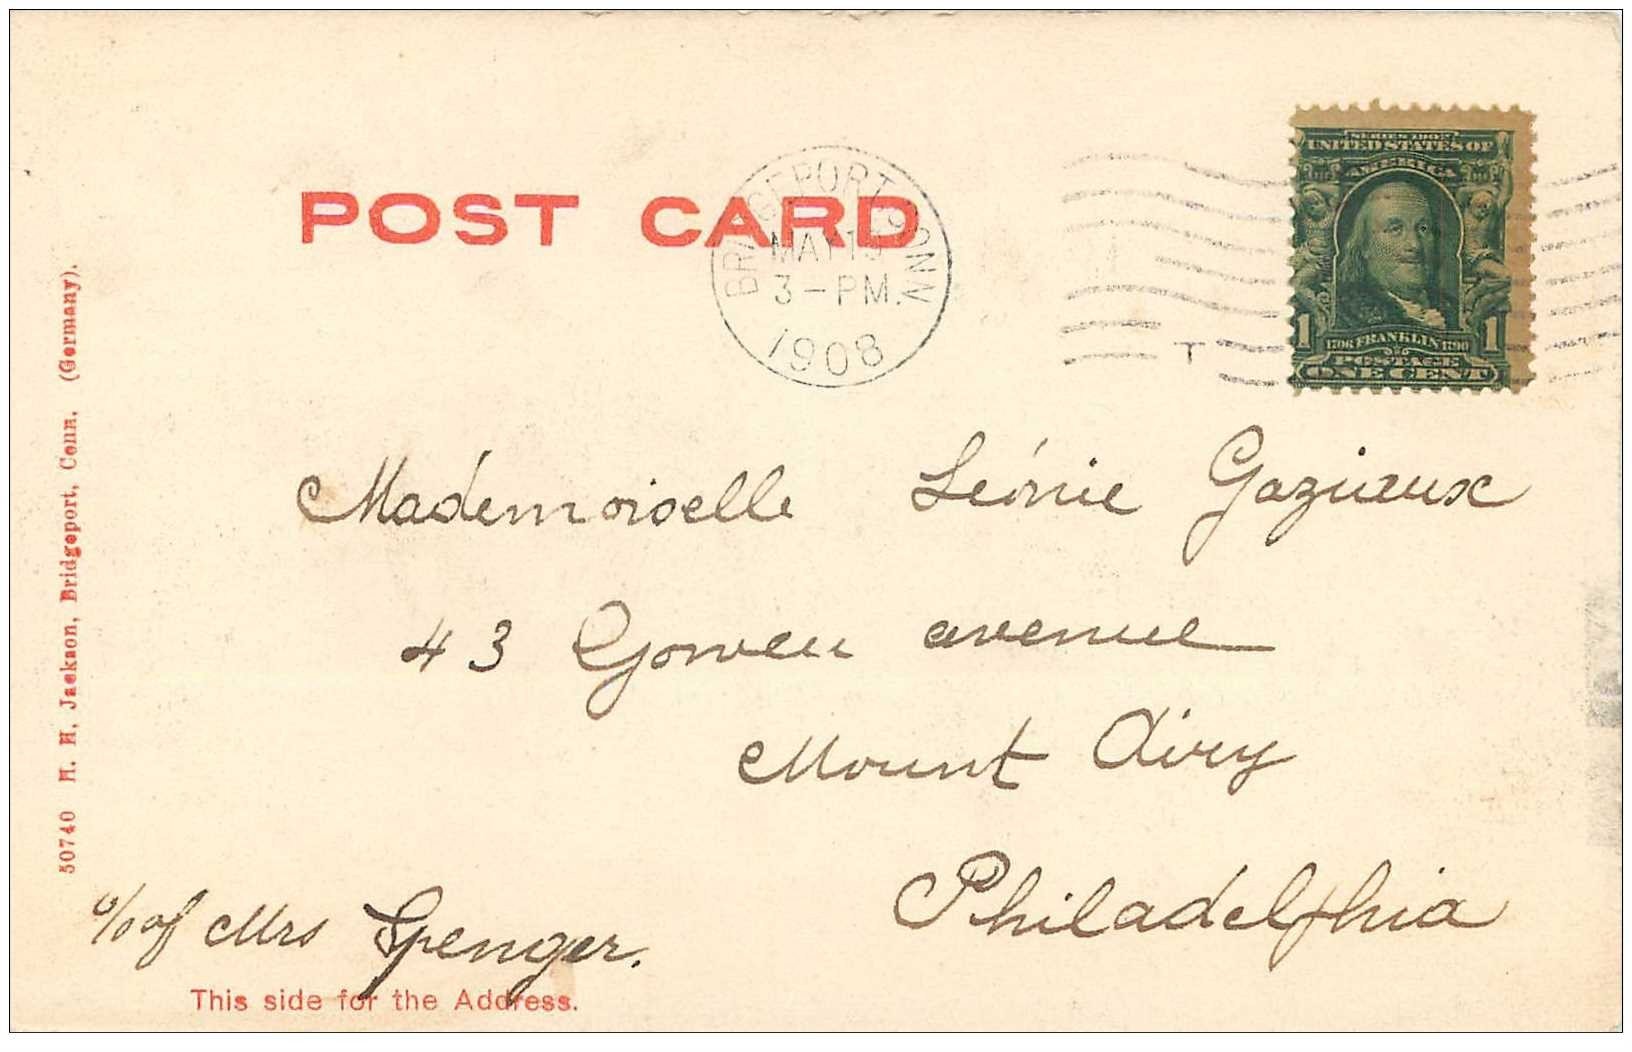 POST CARD
BRIDGEPORT CONN
MAY 13
3-PM.
1908
T
SERIES 1902
UNITED STATES OF
AMERICA
1 1
1706 FRANKLIN 1790
POSTAGE
ONE CENT
Mademoiselle Léonie Gazieux
43 Gowen avenue
Mount Airy
Philadelphia
c/o of Mrs Spenger.
This side for the Address.
50740 H. H. Jackson, Bridgeport, Conn. (Germany).